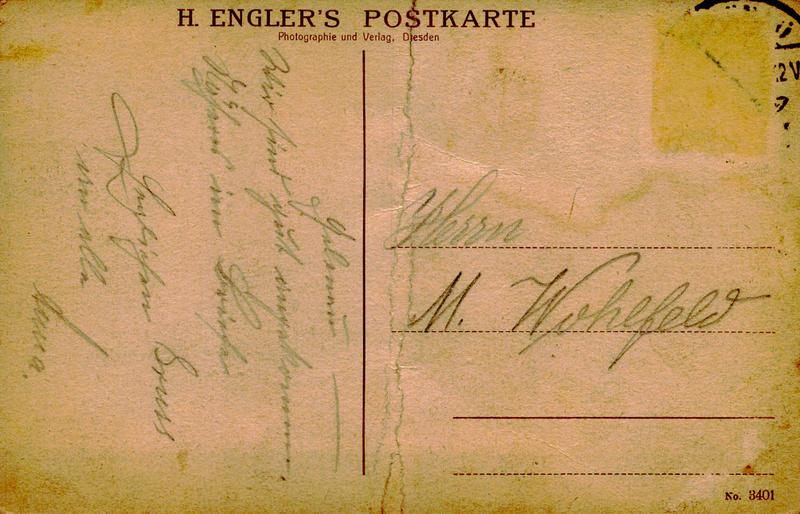 H. ENGLER'S POSTKARTE
Photographie und Verlag, Dresden
Wir sind gut angekommen
im
Herzlichen Gruss
an alle
Anna.
Herrn
M. Wohlfeld
No. 3401